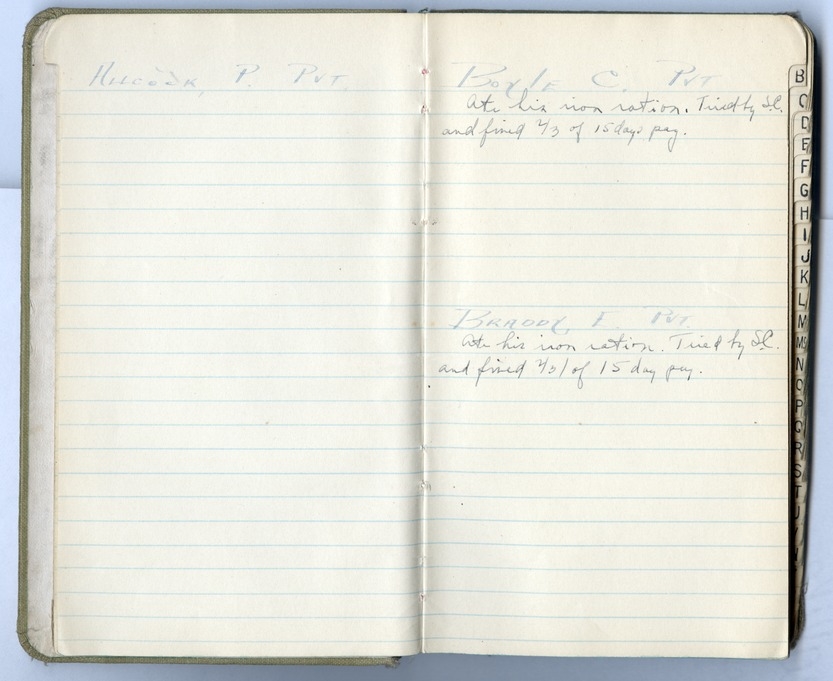 Hiscock, P. Pvt.
Boyle C. Pvt
Ate his iron ration. Tried by S.C.
and fined 2/3 of 15 days pay.
Braddy, E. Pvt.
Ate his iron ration. Tried by S.C.
and fined 2/3 of 15 day pay.
B
C
D
E
F
G
H
I
J
K
L
M
Mc
N
O
P
Q
R
S
T
U